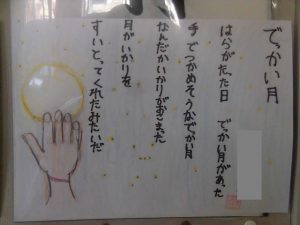 でっかい月
はらがたった日 でっかい月があった
手でつかめそうなでかい月
なんだかいかりがおさまった
月がいかりを
すいとってくれたみたいだ